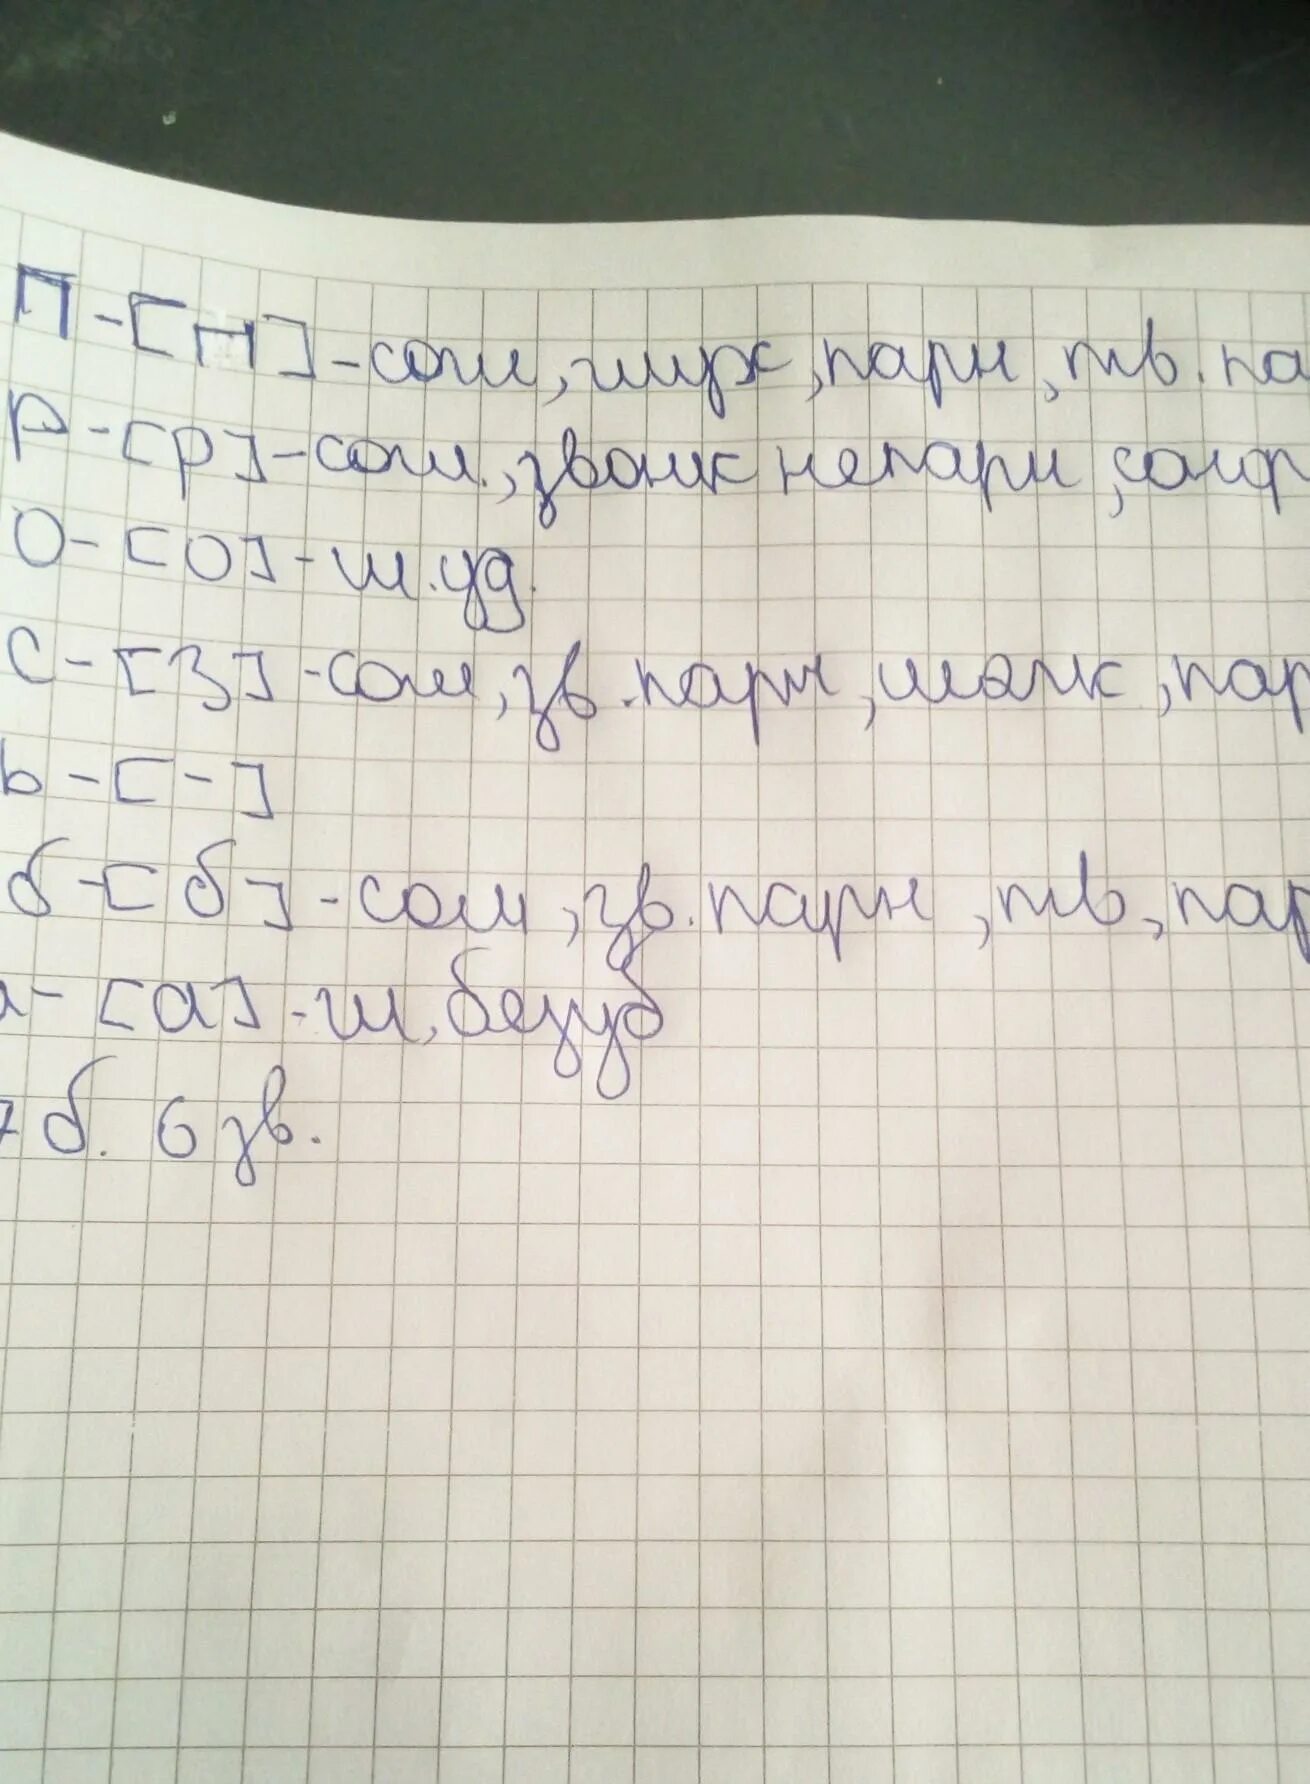 П-[п]-согл, глух, парн, тв. па
Р-[р]-согл., звонк непарн, сонор
О-[О]-гл.уд.
С-[З]-согл, зв.парн, мягк, пар
ь-[-]
б-[б]-согл, зв.парн, тв, пар
а-[а]-гл, безуд
7 б. 6 зв.